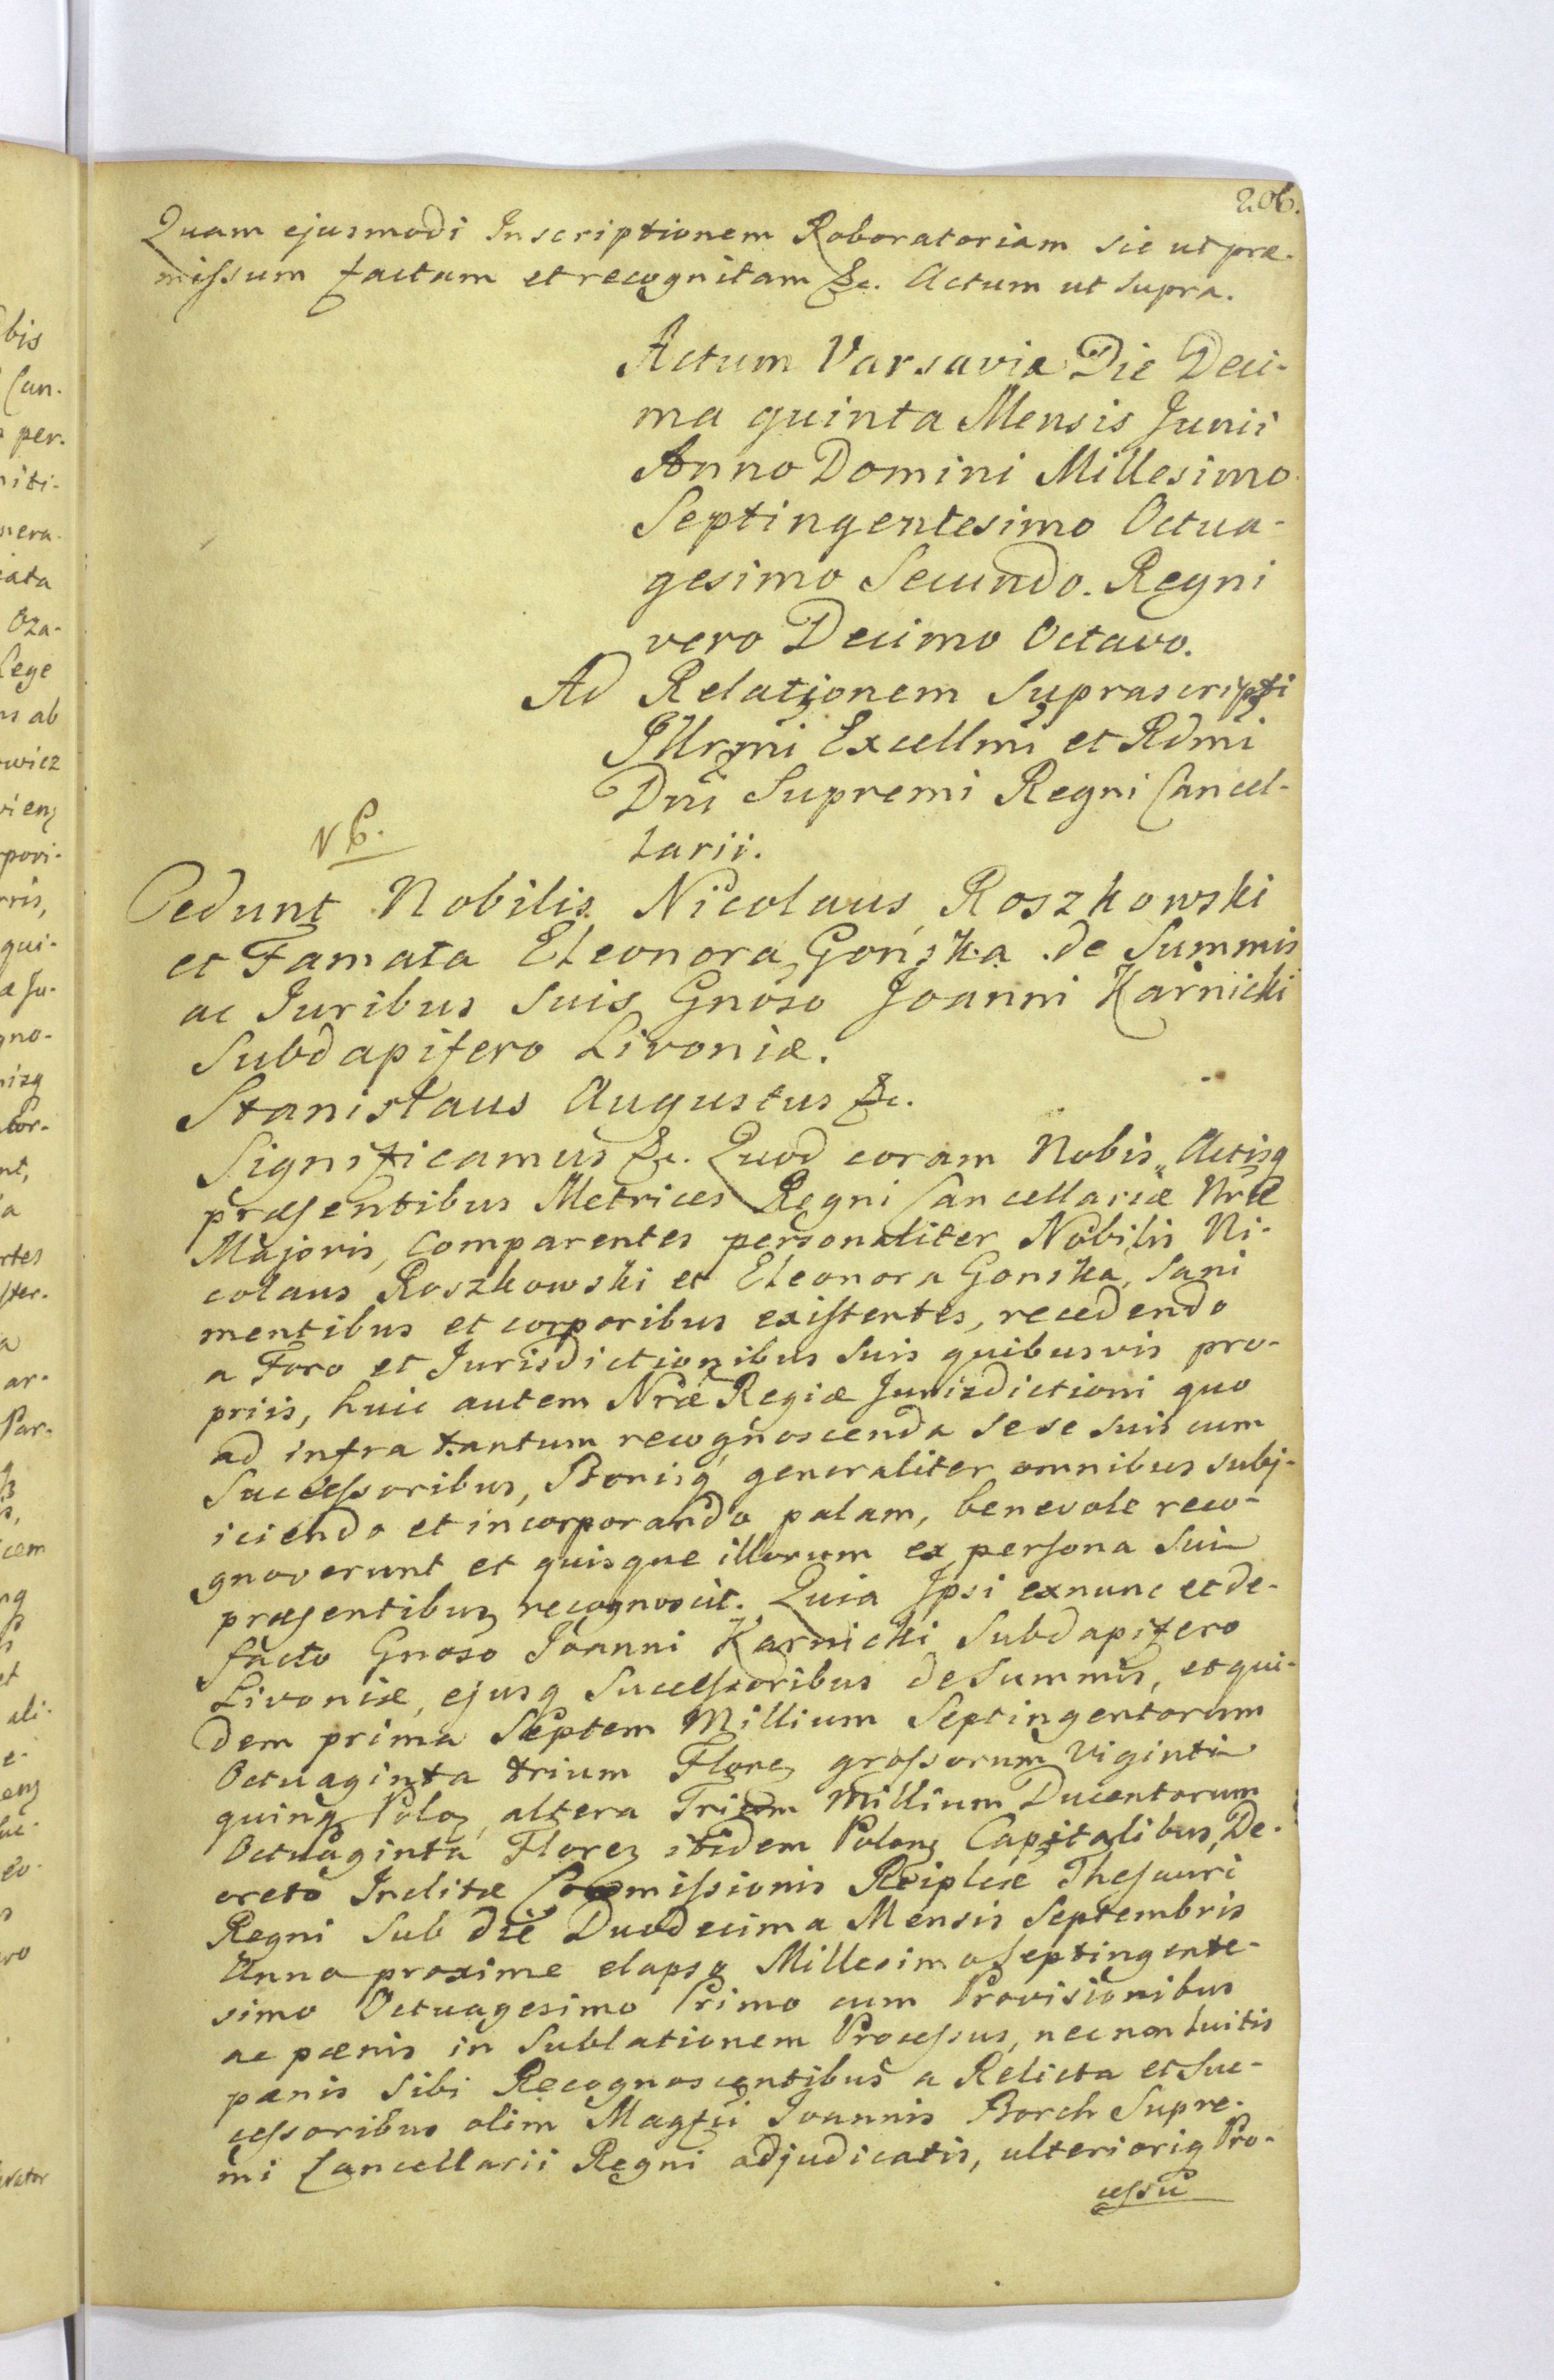 206.
Quam ejusmodi Inscriptionem Roboratoriam sic ut præ-
missum factam et recognitam &c. Actum ut supra.
Actum Varsaviæ Die Deci-
ma quinta Mensis Junii
Anno Domini Millesimo
Septingentesimo Octua-
gesimo Secundo. Regni
vero Decimo Octavo.
Ad Relationem Suprascripti
Illrmi Excellmi et Rdmi
Dni Supremi Regni Cancel-
larii.
Cedunt Nobilis Nicolaus Roszkowski
et Famata Eleonora Gońska de Summis
ac Juribus suis Gnoso Joanni Karnicki
Subdapifero Livoniæ.
Stanislaus Augustus &c.
Significamus &c. Quod coram Nobis Actisq
præsentibus Metrices Regni Cancellariæ Nræ
Majoris, Comparentes personaliter Nobilis Ni-
colaus Roszkowski et Eleonora Gonska, Sani
mentibus et corporibus existentes, recedendo
a Foro et Jurisdictionibus suis quibusvis pro-
priis, huic autem Nræ Regiæ Jurisdictioni quo
ad infra tantum recognoscenda sese suis cum
Successoribus, Bonisq generaliter omnibus subj-
iciendo et incorporando palam, benevole reco-
gnoverunt et quisque illorum ex persona sui
præsentibus recognoscit. Quia Ipsi exnunc et de-
facto Gnoso Joanni Karnicki Subdapifero
Livoniæ, ejusq Successoribus de Summis, et qui-
dem prima Septem Millium Septingentorum
Octuaginta trium Floreꝫ grossorum Viginti
quinq Poloꝫ, altera Trium Millium Ducentorum
Octuaginta Floreꝫ itidem Polonꝫ Capitalibus, De-
creto Inclitæ Commissionis Reiplcæ Thesauri
Regni sub die Duodecima Mensis Septembris
Anno proxime elapso Millesimo Septingente-
simo Octuagesimo Primo cum Provisionibus
ac pænis in Sublationem Processus, nec non luitis
pænis sibi Recognoscentibus a Relicta et Suc-
cessoribus olim Magfci Joannis Borch Supre-
mi Cancellarii Regni adjudicatis, ulteriorig Pro-
cessu